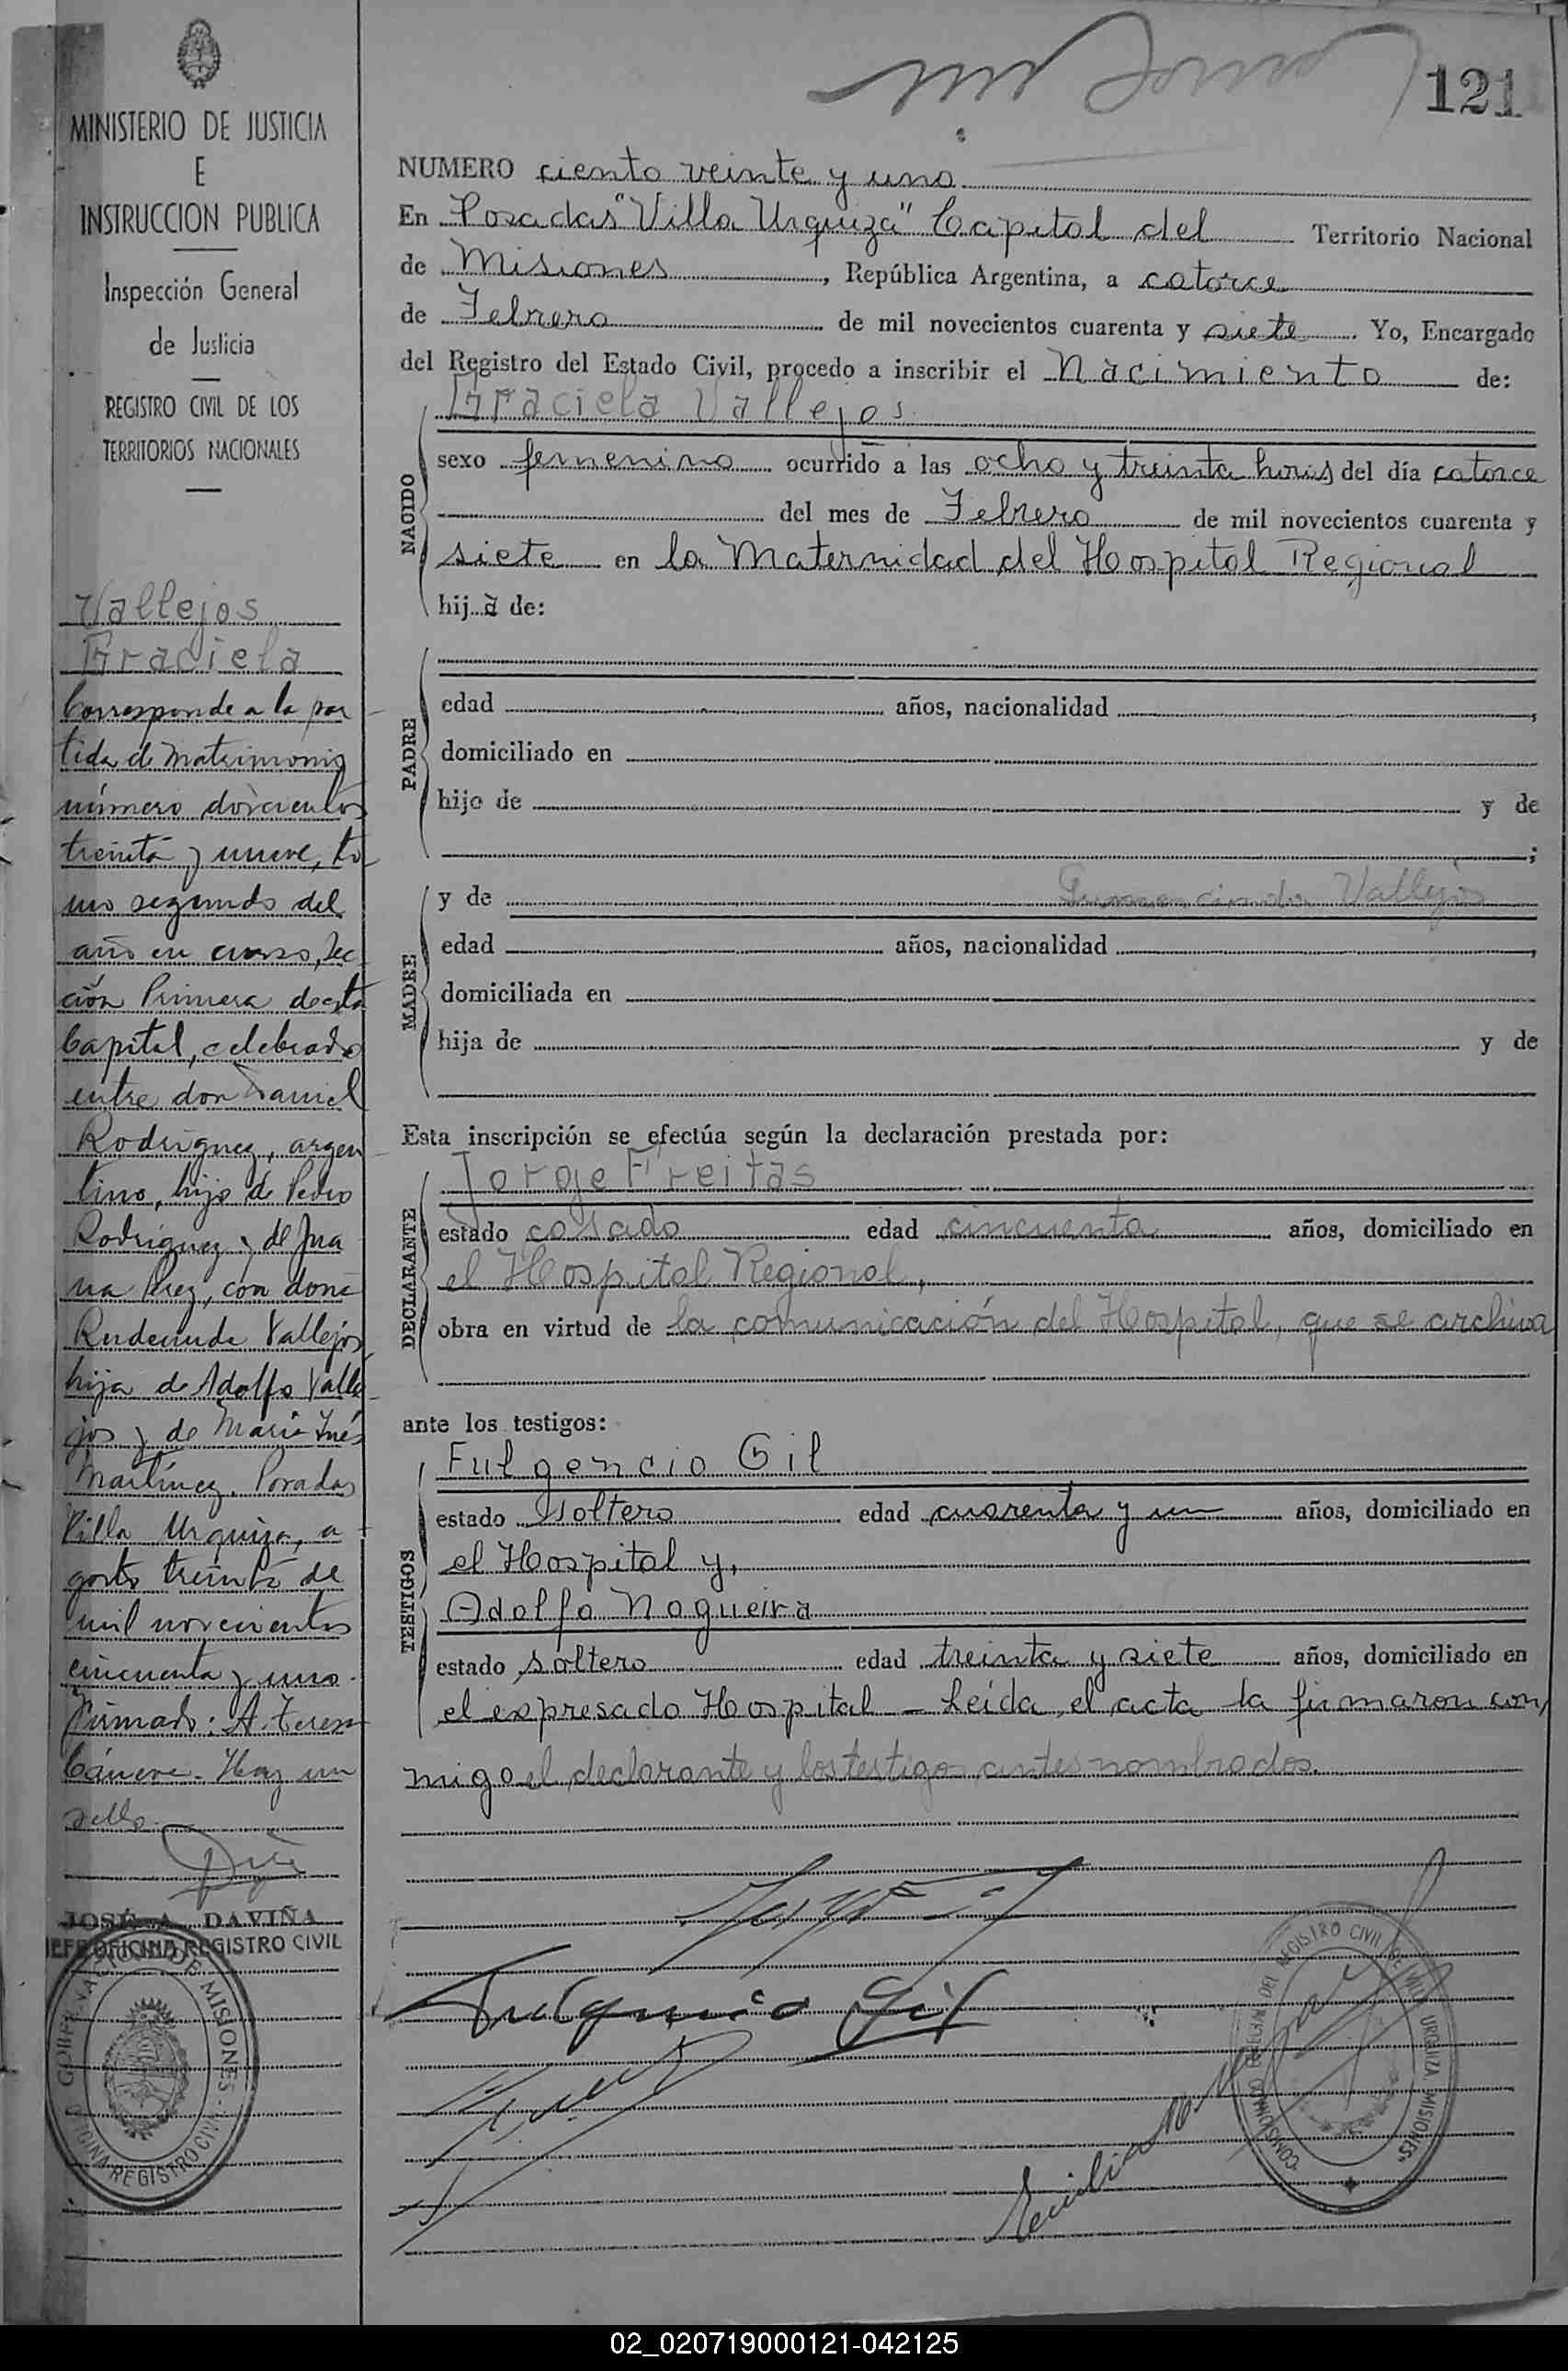 121
MINISTERIO DE JUSTICIA
E
INSTRUCCION PUBLICA
Inspección General
de Justicia
REGISTRO CIVIL DE LOS
TERRITORIOS NACIONALES
Vallejos
Graciela
Corresponde a la par
tida de matrimonio
número doscientos
treinta y nueve, to
mo segundo del
año en curso, Sec
ción Primera de esta
Capital, celebrado
entre don Daniel
Rodriguez, argen
tino, hijo de Pedro
Rodriguez y de Jua
na Perez, con doña
Vallejos
hija de Adolfo Valle
jos y de María Inés
Martínez. Posadas
Villa Urquiza, a
gosto treinta de
mil novecientos
cincuenta y uno.
Firmado: A. Teresa
Hay un
sello.
JOSÉ A. DAVIÑA
JEFE OFICINA REGISTRO CIVIL
GOBERNACION DE MISIONES
OFICINA REGISTRO CIVIL
NUMERO ciento veinte y uno
En Posadas "Villa Urquiza" Capital del Territorio Nacional
de Misiones, República Argentina, a catorce
de Febrero de mil novecientos cuarenta y siete. Yo, Encargado
del Registro del Estado Civil, procedo a inscribir el Nacimiento de:
NACIDO
Graciela Vallejos
sexo femenino ocurrido a las ocho y treinta horas del día catorce
del mes de Febrero de mil novecientos cuarenta y
siete en la Maternidad del Hospital Regional
hij a de:
PADRE
edad años, nacionalidad ,
domiciliado en
hijo de y de
;
MADRE
y de Gumercinda Vallejos
edad años, nacionalidad ,
domiciliada en
hija de y de
Esta inscripción se efectúa según la declaración prestada por:
DECLARANTE
Jorge Freitas
estado casado edad cincuenta años, domiciliado en
el Hospital Regional,
obra en virtud de la comunicación del Hospital, que se archiva
ante los testigos:
TESTIGOS
Fulgencio Gil
estado soltero edad cuarenta y un años, domiciliado en
el Hospital y,
Adolfo Nogueira
estado soltero edad treinta y siete años, domiciliado en
el expresado Hospital – Leída el acta la firmaron con
migo el declarante y los testigos antes nombrados.
Fulgencio Gil
REGISTRO CIVIL DE VILLA URQUIZA MISIONES
02_020719000121-042125